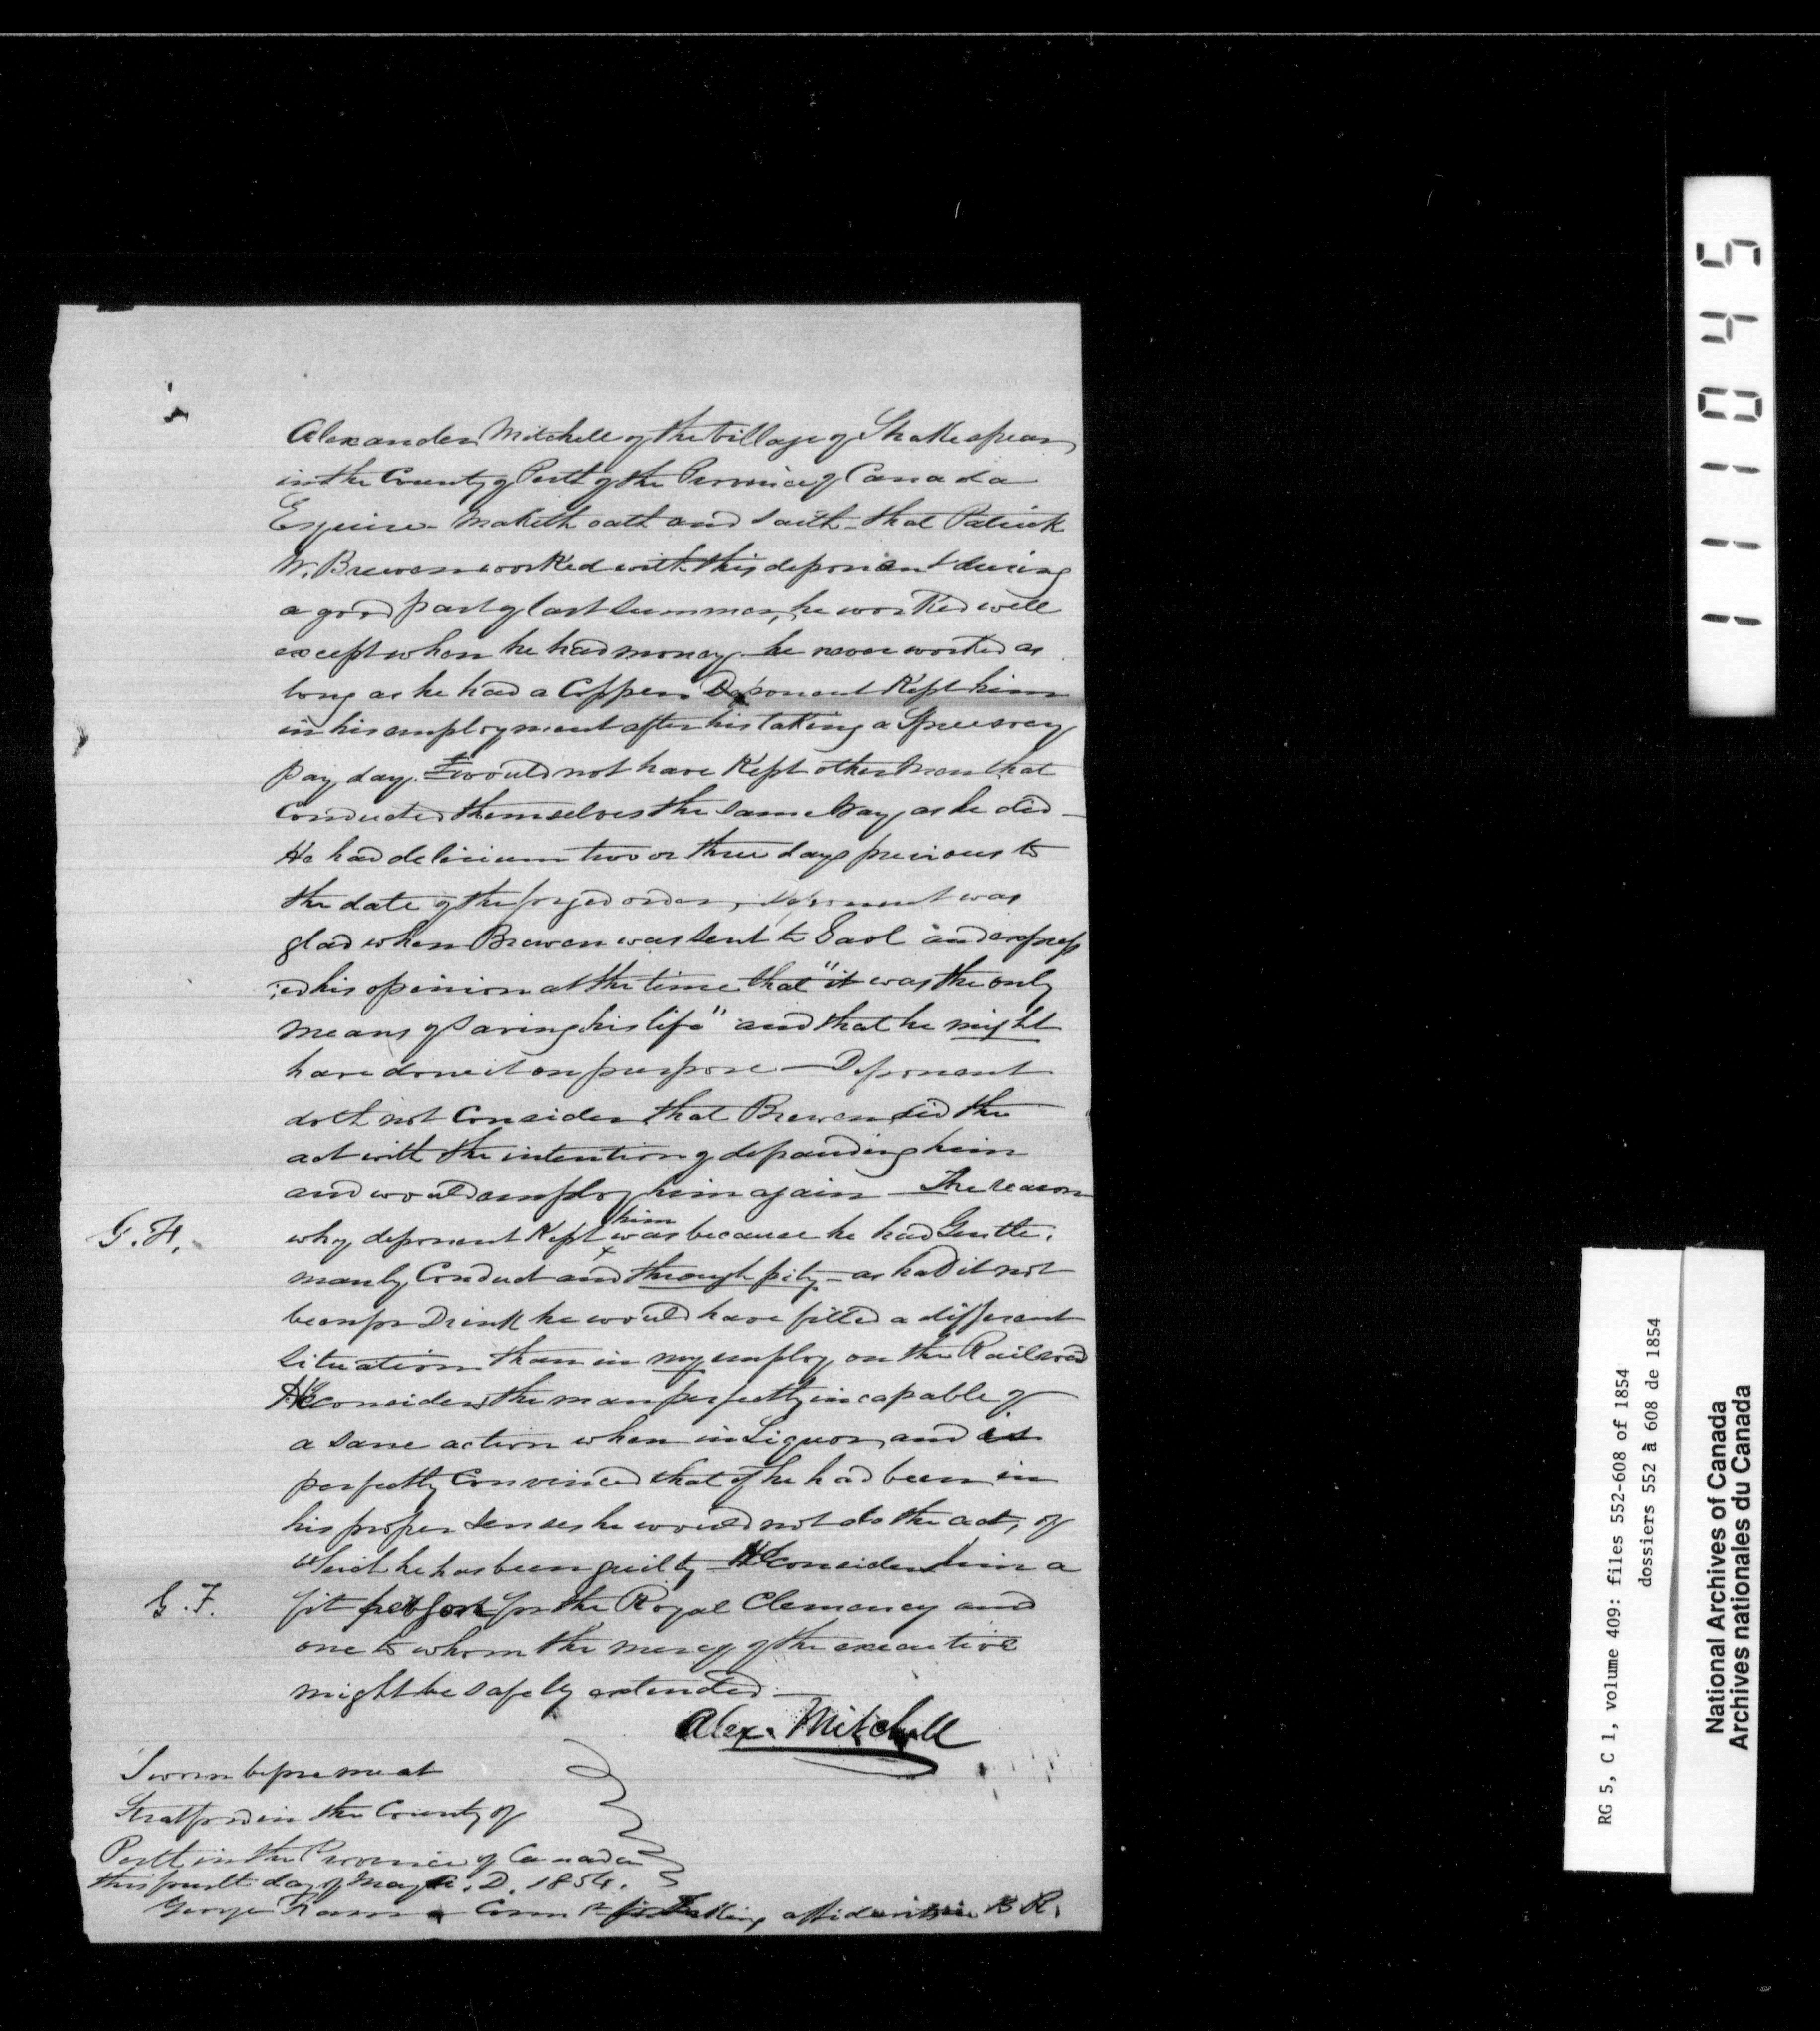 Alexander Mitchell of the Village of Shakespear
in the County of Perth of the Province of Canada
Esquire - Maketh oath and saith - that Patrick
W. Brewen worked with this deponent during
a good part of last summer, he worked well
except when he had money he never worked as
long as he had a Copper. Deponent Kept him
in his employment after his taking a Spree every
pay day. would not have Kept other Men that
Conducted themselves the same Way as he did -
He had delirium two or three days previous to
the date of the forged order, Deponent was
glad when Brewen was sent to Gaol and express
:ed his opinion at the time that "it was the only
means of saving his life" and that he might
have done it on purpose - Deponent
doth not Consider that Brewen did the
act with the intention of defrauding him
and would employ him again - The reason
G. F. why deponent Kept him was because he had Gentle:
manly Conduct and through pity - as had it not
been for Drink he would have filled a different
situation than in my employ on the Railroad
He considers the man perfectly incapable of
a sane action when in Liquor, and is
perfectly Convinced that if he had been in
his proper senses he would not do the act, of
which he has been guilty - He considers him a
G. F. fit person for the Royal Clemency and
one to whom the mercy of the executive
might be safely extended -
Alex. Mitchell
Sworn before me at
Stratford in the County of
Perth in the Province of Canada
this fourth day of May A. D. 1854.
George Comr for Taking affidavits in B R.
1 1 1 1 0 4 5
RG 5, C 1, volume 409: files 552-608 of 1854
dossiers 552 à 608 de 1854
National Archives of Canada
Archives nationales du Canada